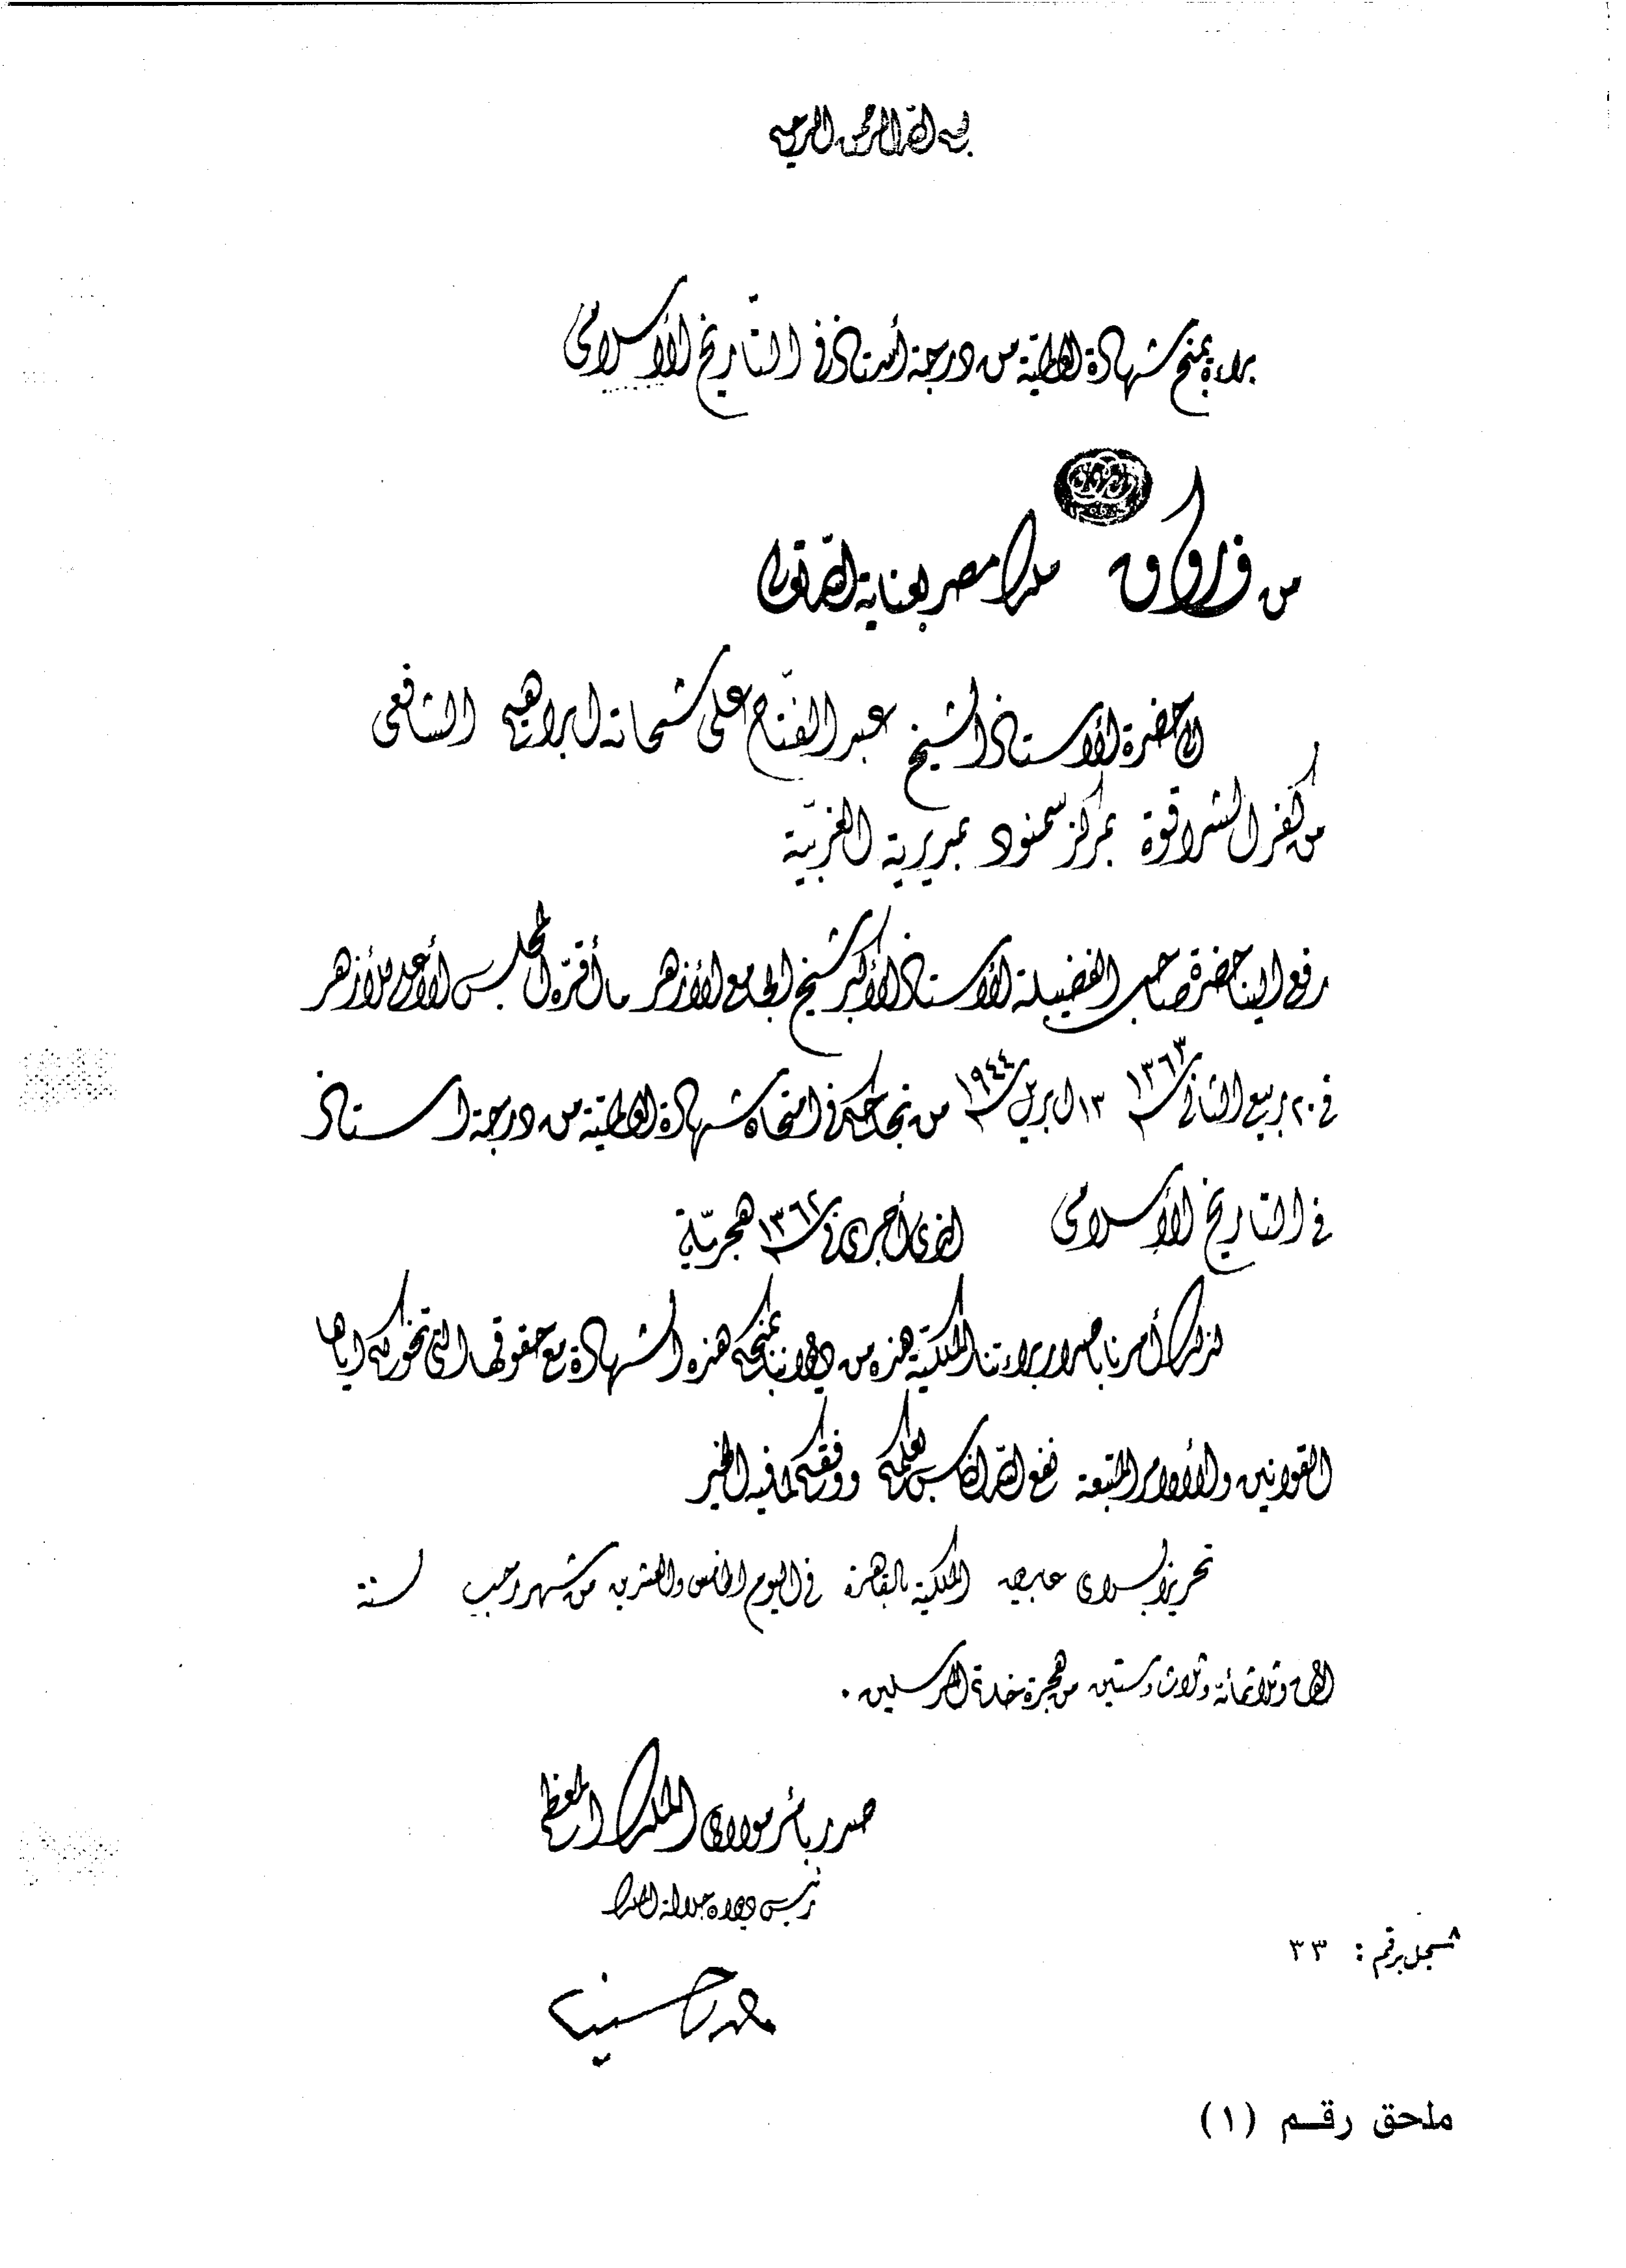 بسم الله الرحمن الرحيم
براءة بمنح شهادة العالمية من درجة أستاذ في التاريخ الإسلامى
من فاروق ملك مصر بعناية الله تعالى
الى حضرة الأستاذ الشيخ عبد الفتاح على شحاته ابراهيم الشافعى
من كفر الشراقوة بمركز سمنود بمديرية الغربية
رفع الينا حضرة صاحب الفضيلة الأستاذ الأكبر شيخ الجامع الأزهر ما أقره المجلس الأعلى للأزهر
فى ٢٠ ربيع الثانى سنة ١٣٦٣ ١٣ ابريل سنة ١٩٤٤ من نجاحكم فى امتحان شهادة العالمية من درجة استاذ
فى التاريخ الإسلامى الذى أجرى فى سنة ١٣٦٢ هجرية
لذلك أمرنا باصدار براءتنا الملكية هذه من ديواننا بمنحكم هذه الشهادة مع حقوقها التى تخولكم اياها
القوانين والأوامر المتبعة نفع الله الناس بعلمكم ووفقكم لما فيه الخير
تحريرا بسراى عابدين الملكية بالقاهرة فى اليوم الخامس والعشرين من شهر رجب سنة
الف وثلاثمائة وثلاث وستين من هجرة خاتم المرسلين.
صدر بأمر مولانا الملك المعظم
رئيس ديوان جلالة الملك
مسجل برقم : ٣٣
ملحق رقم (١)